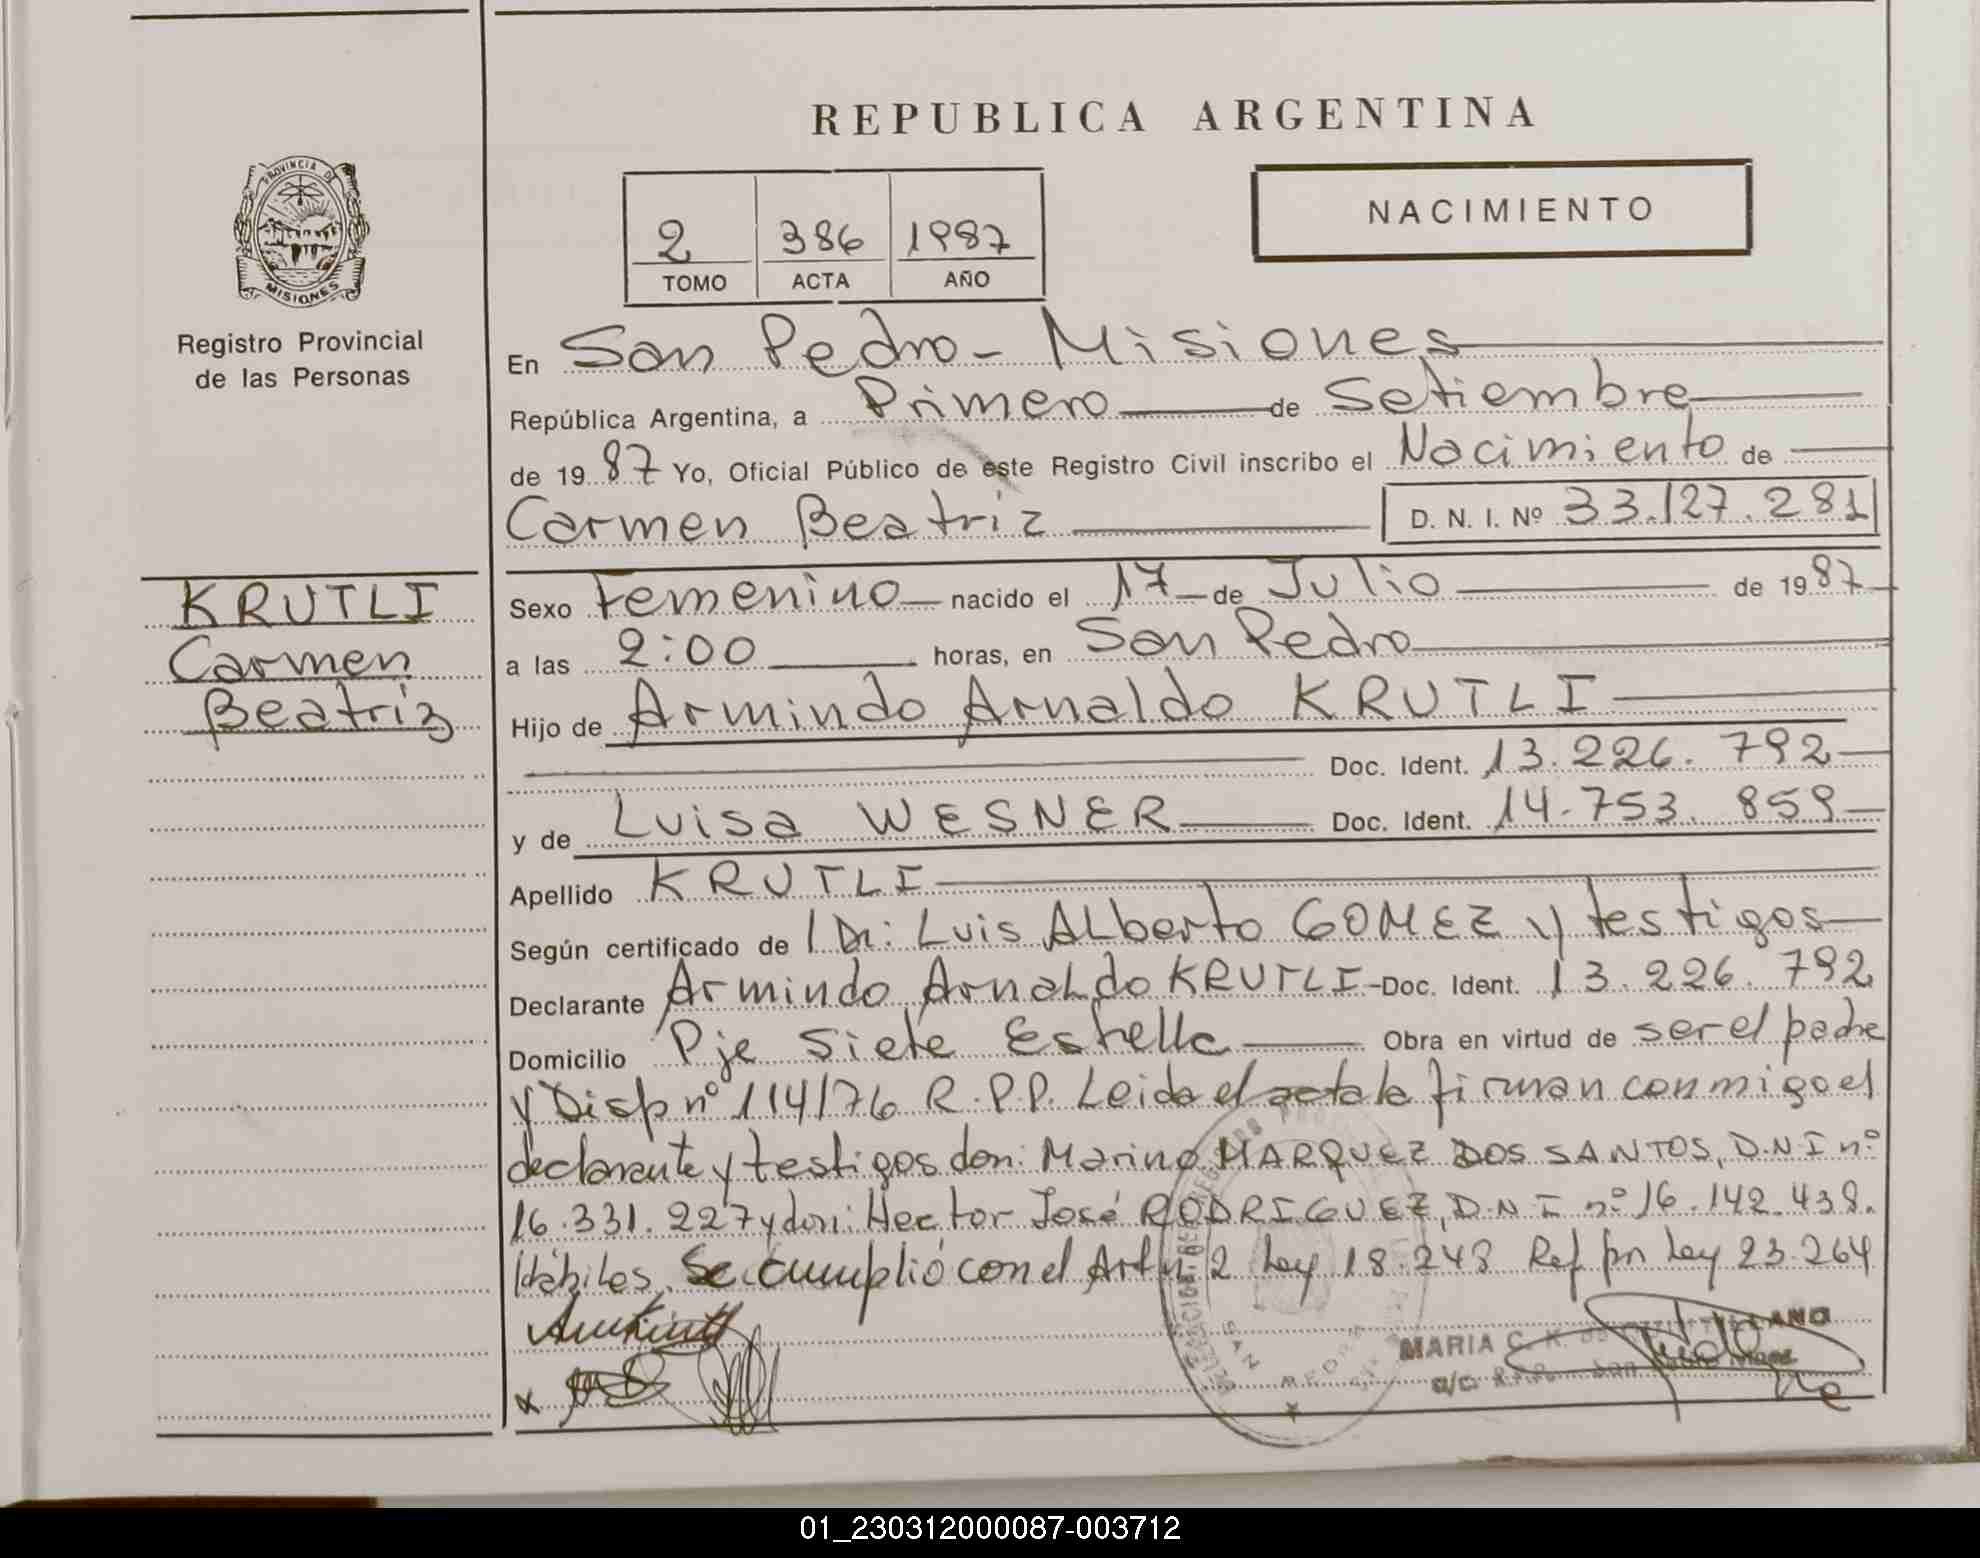 REPUBLICA ARGENTINA
NACIMIENTO
2 386 1987
TOMO ACTA AÑO
PROVINCIA DE
MISIONES
Registro Provincial
de las Personas
KRUTLI
Carmen
Beatriz
En San Pedro - Misiones
República Argentina, a Primero de Setiembre
de 1987 Yo, Oficial Público de este Registro Civil inscribo el Nacimiento de
Carmen Beatriz D. N. I. Nº 33.127.281
Sexo Femenino nacido el 17 de Julio de 1987
a las 2:00 horas, en San Pedro
Hijo de Armindo Arnaldo KRUTLI
Doc. Ident. 13.226.792
y de Luisa WESNER Doc. Ident. 14.753.859
Apellido KRUTLI
Según certificado de Luis ALberto GOMEZ y testigos
Declarante Armindo ArnaLdo KRUTLI - Doc. Ident. 13.226.792
Domicilio Pje Siete Estrella Obra en virtud de ser el padre
y Disp nº 114/76 R.P.P. Leida el acta la firman conmigo el
declarante y testigos don: Marino MARQUEZ DOS SANTOS, D.N.I nº
16.331.227 y don: Hector José RODRIGUEZ, D.N.I nº 16.142.438.
Hábiles. Se cumplió con el Art 2 Ley 18.248 Ref por Ley 23.264
SAN PEDRO
MARIA C.
a/c R.P.P. San
01_230312000087-003712